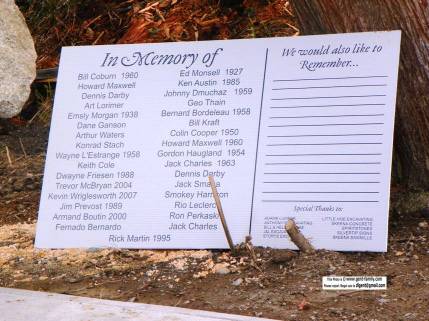 In Memory of
Bill Coburn 1960
Howard Maxwell
Dennis Darby
Art Lorimer
Emsly Morgan 1938
Dane Ganson
Arthur Waters
Konrad Stach
Wayne L'Estrange 1958
Keith Cole
Dwayne Friesen 1988
Trevor McBryan 2004
Kevin Wriglesworth 2007
Jim Prevost 1989
Armand Boutin 2000
Fernado Bernardo
Ed Monsell 1927
Ken Austin 1985
Johnny Dmuchaz 1959
Geo Thain
Bernard Bordeleau 1958
Bill Kraft
Colin Cooper 1950
Howard Maxwell 1960
Gordon Haugland 1954
Jack Charles 1963
Dennis Darby
Jack
Smokey
Rio Leclerc
Ron Perkaski
Jack Charles
Rick Martin 1995
We would also like to
Remember...
Special Thanks to:
LITTLE HOE EXCAVATING
SKEENA CONCRETE
SPIRITSTONES
SILVERTIP SIGNS
SKEENA SAWMILLS